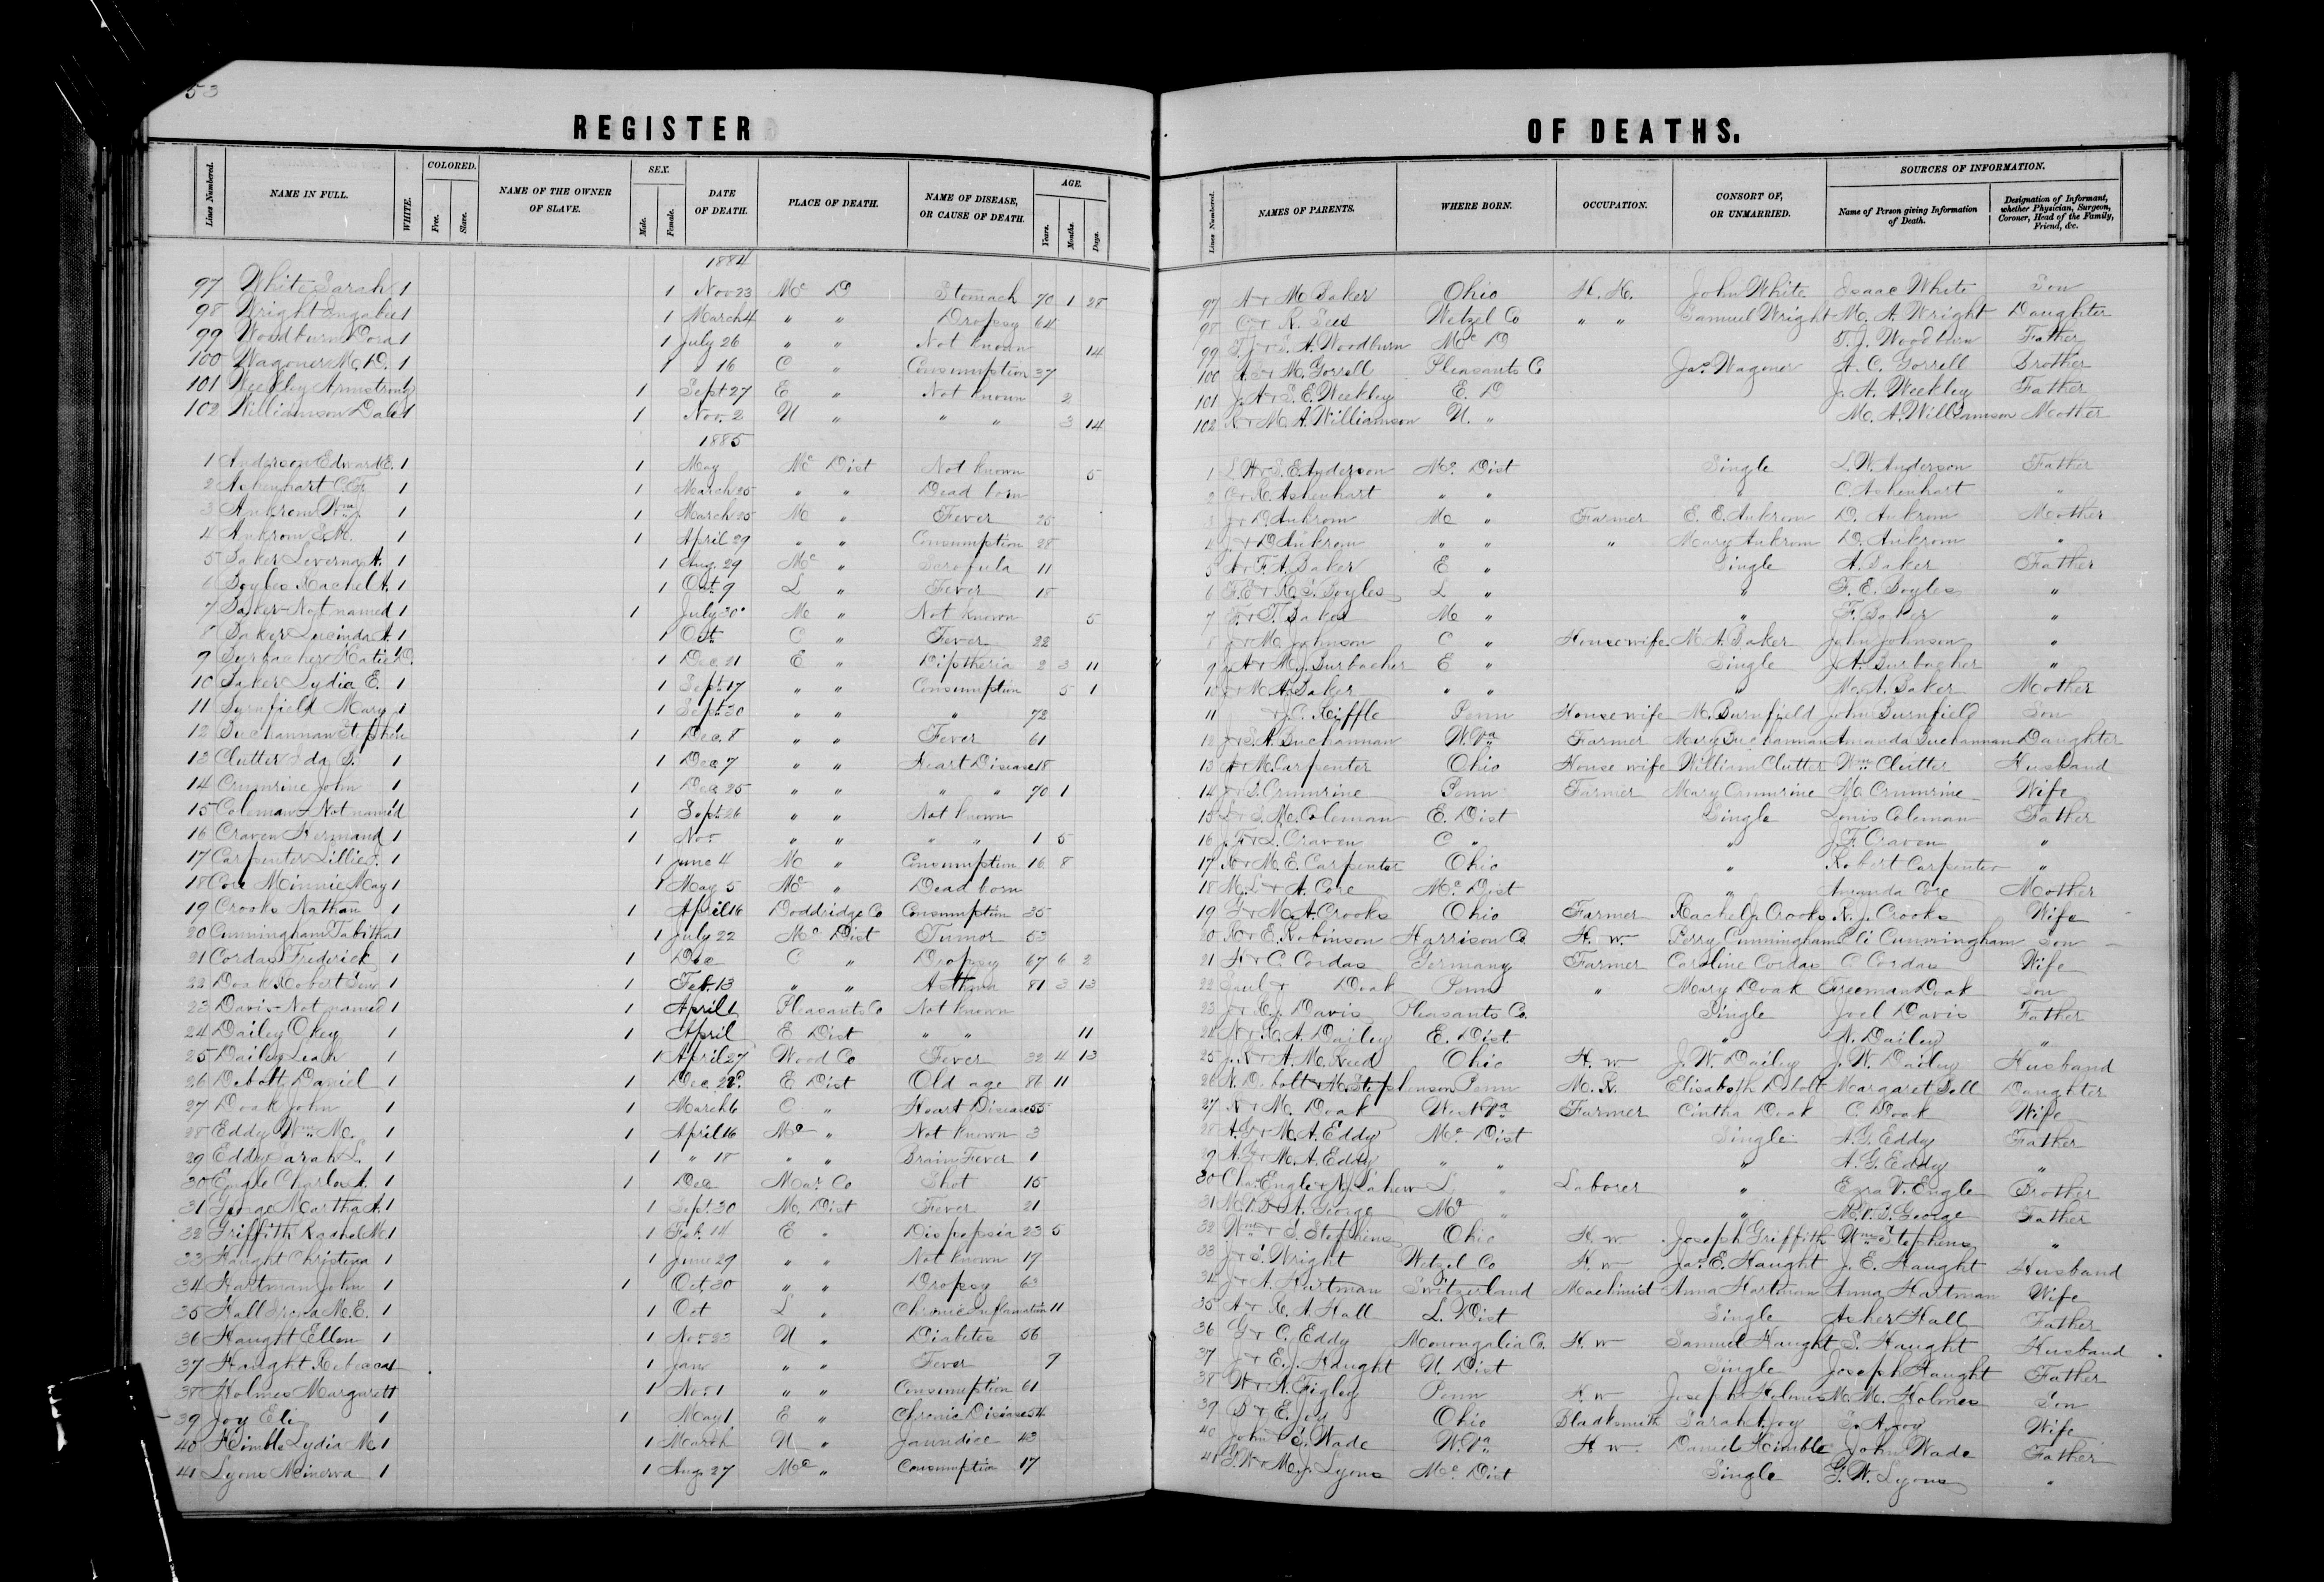 53
REGISTER OF DEATHS.
Lines Numbered. NAME IN FULL. WHITE. COLORED. Free. Slave. NAME OF THE OWNER OF SLAVE. SEX. Male. Female. DATE OF DEATH. PLACE OF DEATH. NAME OF DISEASE, OR CAUSE OF DEATH. AGE. Years. Months. Days. Lines Numbered. NAMES OF PARENTS. WHERE BORN. OCCUPATION. CONSORT OF, OR UNMARRIED. SOURCES OF INFORMATION. Name of Person giving Information of Death. Designation of Informant, whether Physician, Surgeon, Coroner, Head of the Family, Friend, &c.
1884
97 White Sarah 1 1 Nov 23 Mc D Stomach 70 1 28 97 A + M Baker Ohio H. H. John White Isaac White Son
98 Wright 1 1 March 4 " " Dropsy 64 98 C + R. Wetzel Co " " Samuel Wright M. A. Wright Daughter
99 Woodburn Dora 1 1 July 26 " " Not known 14 99 T. J + S. A. Woodburn Mc D T. J. Woodburn Father
100 Wagoner M. D. 1 1 " 16 C " Consumption 37 100 + M. Gorrell Pleasants C Jas. Wagoner A. C. Gorrell Brother
101 Weekley Armstrong 1 1 Sept 27 E " Not known 2 101 J. A + S. E. Weekley E. D J. A. Weekley Father
102 Williamson Dale 1 1 Nov. 2 U " " " 3 14 102 R + M. A. Williamson U. " M. A. Williamson Mother
1885
1 Anderson Edward E. 1 1 May Mc Dist Not known 5 1 L. W + S. E. Anderson Mc Dist Single L. W. Anderson Father
2 Ashenhart 1 1 March 25 " " Dead born 2 C + R. Ashenhart " " " C. Ashenhart "
3 Ankrom Wm 1 1 March 25 Me " Fever 25 3 J + D. Ankrom Me " Farmer E. E. Ankrom D. Ankrom Mother
4 Ankrom E. M. 1 1 April 29 " " Consumption 28 4 J. + D Ankrom " " " Mary Ankrom D. Ankrom "
5 Baker Leverna A. 1 1 Aug. 29 Mc " Scrofula 11 5 A + F. A. Baker E " Single A. Baker Father
6 Boyles Rachel A. 1 1 Oct. 9 L " Fever 18 6 F. E + R. S. Boyles L " " F. E. Boyles "
7 Baker - Not named 1 1 July 30 Me " Not known 5 7 F. + T. Baker Me " " F. Baker "
8 Baker Lucinda A. 1 1 Oct C " Fever 22 8 J + M. Johnson C " Housewife M. A. Baker John Johnson "
9 Burbacher Katie D. 1 Dec. 21 E " Diptheria 2 3 11 9 J. A + M. J. Burbacher E " Single J. A. Burbacher "
10 Baker Lydia E. 1 1 Sept. 17 " " Consumption 5 1 10 J + M. A. Baker " " " M. A. Baker Mother
11 Byrnfield Mary 1 1 Sept. 30 " " " 72 11 + J. C. Riffle Penn Housewife M. Burnfield John Burnfield Son
12 Buchannan Stephen 1 Dec. 8 " " Fever 61 12 J + S. A. Buchannan W. Va Farmer Mary Buchannan Amanda Buchannan Daughter
13 Clutter Ida B. 1 1 Dec 7 " " Heart Disease 18 13 A + M. Carpenter Ohio House wife William Clutter Wm. Clutter Husband
14 Crumrine John 1 1 Dec 25 " " " " 70 1 14 J + S. Crumrine Penn Farmer Mary Crumrine M. Crumrine Wife
15 Coleman - Not named 1 1 Sept. 26 " " Not known 15 L + S. M. Coleman E. Dist Single Louis Coleman Father
16 Craven Hermand 1 1 Nov. " " " " 1 5 16 J. F + L. Craven C " " J. F. Craven "
17 Carpenter Lillie 1 1 June 4 Me " Consumption 16 8 17 R + M. E. Carpenter Ohio " Robert Carpenter "
18 Core Minnie May 1 1 May 5 Mc " Dead born 18 M. L + A. Core Mc Dist " Amanda Core Mother
19 Crooks Nathan 1 1 April 16 Doddridge Co Consumption 35 19 G + M. A. Crooks Ohio Farmer Rachel J. Crooks R. J. Crooks Wife
20 Cunningham Tabitha 1 1 July 22 Mc Dist Tumor 53 20 R + E. Robinson Harrison Co. H. w. Perry Cunningham Eli Cunningham Son
21 Cordas Frederick 1 1 Dec C " Dropsy 67 6 2 21 H + C. Cordas Germany Farmer Caroline Cordas C. Cordas Wife
22 Doak Robert Senr 1 1 Feb. 13 " " Asthma 81 3 13 22 + Doak Penn " Mary Doak Freeman Doak Son
23 Davis - Not named 1 1 April 1 Pleasants Co Not known 23 J + R. J. Davis Pleasants Co. Single Joel Davis Father
24 Dailey Okey 1 1 April E Dist " " 11 24 N + R. A. Dailey E. Dist " N. Dailey "
25 Dailey Leah 1 1 April 27 Wood Co Fever 32 4 13 25 J. R + A. M. Reed Ohio H. w J. W. Dailey J. W. Dailey Husband
26 Debolt Daniel 1 1 Dec. 22 E Dist Old age 86 11 26 N. Debolt + M. Stephenson Penn M. R. Elisabeth Debolt Margaret Daughter
27 Doak John 1 1 March 6 C " Heart Disease 55 27 R + M. Doak West Va Farmer Cintha Doak C. Doak Wife
28 Eddy Wm. M. 1 1 April 16 Mc " Not known 3 28 A. G + M. A. Eddy Mc Dist Single A. G. Eddy Father
29 Eddy Sarah L. 1 1 " 18 " " Brain Fever 1 29 A. G + M. A. Eddy " " " A. G. Eddy "
30 Engle Charles A. 1 1 Dec Mar. Co Shot 15 30 Chas. Engle + N. Lahew L " Laborer " Ezra V. Engle Brother
31 George Martha A. 1 1 Sept. 30 Me. Dist Fever 21 31 M. V. B + A. George Me " " M. V. B. George Father
32 Griffith Rachel M. 1 1 Feb. 14 E " Dispepsia 23 5 32 Wm + S. Stephens Ohio H. w Joseph Griffith Wm Stephens "
33 Haught Christena 1 1 June 29 " " Not known 19 33 J + S. Wright Wetzel Co H. w Jas. E. Haught J. E. Haught Husband
34 Hartman John 1 1 Oct 30 " " Dropsy 63 34 J + A. Hartman Switzerland Machinist Anna Hartman Anna Hartman Wife
35 Hall M. E. 1 1 Oct L " Chronic Inflamation 11 35 A + R. A. Hall L. Dist Single Asher Hall Father
36 Haught Ellen 1 1 Nov. 23 U " Diabetis 56 36 G + C. Eddy Monongalia Co. H. w Samuel Haught S. Haught Husband
37 Haught Rebecca 1 1 Jan " " Fever 9 37 J + E. J. Haught U. Dist Single Joseph Haught Father
38 Holmes Margaret 1 1 Nov. 1 " " Consumption 61 38 W + A. Figley Penn H. w Joseph Holmes M. M. Holmes Son
39 Joy Eli 1 1 May 1 E " Chronic Disease 54 39 B + E. Joy Ohio Blacksmith Sarah A. Joy S. A. Joy Wife
40 Kimble Lydia M. 1 1 March U " Jaundice 43 40 John + S. Wade W. Va H. w Daniel Kimble John Wade Father
41 Lyons Minerva 1 1 Aug. 27 Mc " Consumption 17 41 G. W + M. J. Lyons Mc Dist Single G. W. Lyons "